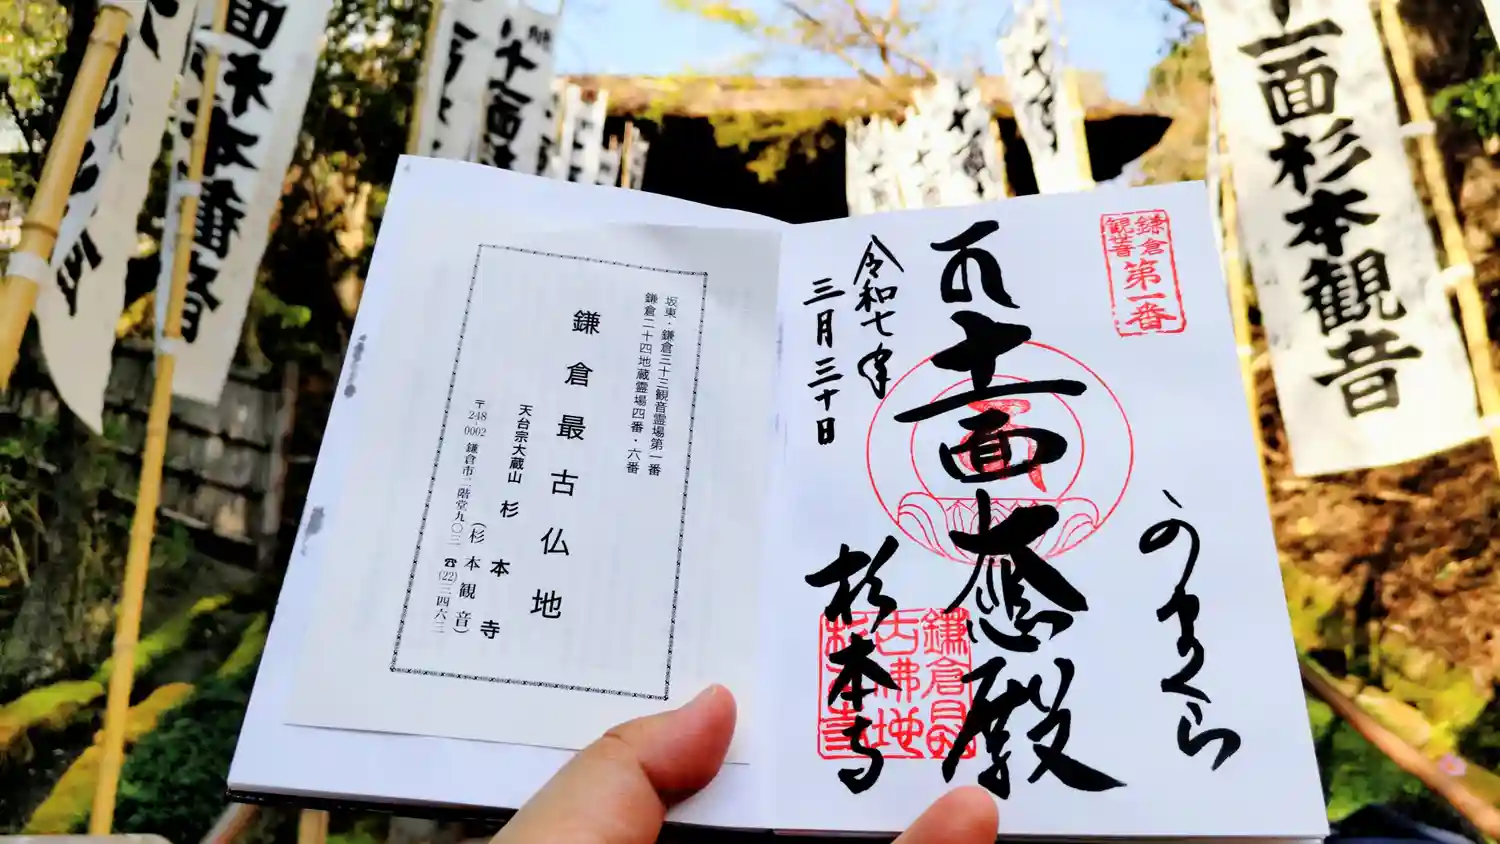 十一面杉本観音
面杉本観音
十一面
坂東・鎌倉三十三観音霊場第一番
鎌倉二十四地蔵霊場四番・六番
鎌倉最古仏地
天台宗大蔵山 杉本寺
(杉本観音)
〒248-0002 鎌倉市二階堂九〇三
☎(22)三四六三
鎌倉
観音
第一番
かまくら
十一面大悲殿
令和七年
三月三十日
杉本寺
鎌倉最
古佛地
杉本寺